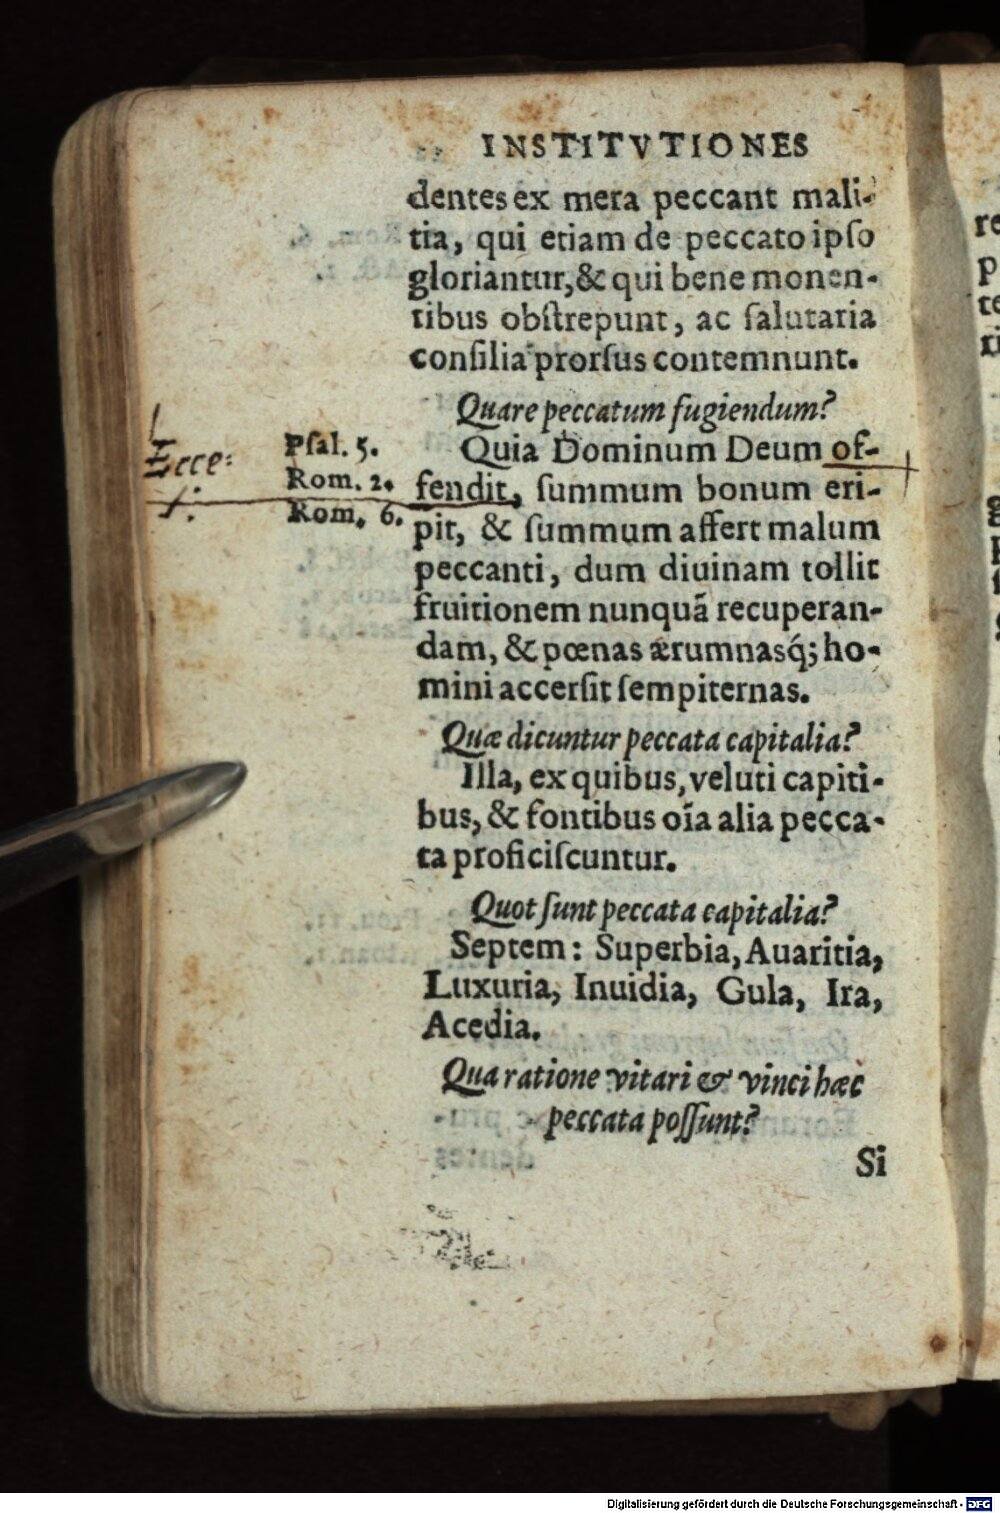 INSTITVTIONES
dentes ex mera peccant mali-
tia, qui etiam de peccato ipſo
gloriantur, & qui bene monen-
tibus obſtrepunt, ac ſalutaria
conſilia prorſus contemnunt.
Quare peccatum fugiendum?
Quia Dominum Deum of-
fendit, ſummum bonum eri-
pit, & ſummum affert malum
peccanti, dum diuinam tollit
fruitionem nunquã recuperan-
dam, & pœnas ærumnasq́; ho-
mini accerſit ſempiternas.
Ecce:
Pſal. 5.
Rom. 2.
Rom. 6.
Quæ dicuntur peccata capitalia?
Illa, ex quibus, veluti capiti-
bus, & fontibus oĩa alia pecca-
ta proficiſcuntur.
Quot ſunt peccata capitalia?
Septem: Superbia, Auaritia,
Luxuria, Inuidia, Gula, Ira,
Acedia.
Qua ratione vitari & vinci hæc
peccata poſſunt?
Si
Digitalisierung gefördert durch die Deutsche Forschungsgemeinschaft - DFG